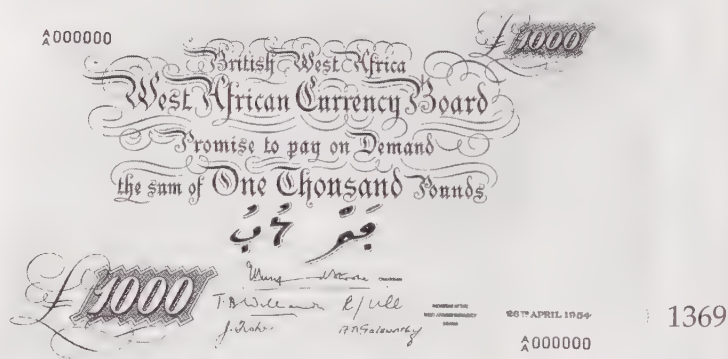 A/A 000000
£1000
British West Africa
West African Currency Board
Promise to pay on Demand
the sum of One Thousand Pounds
CHAIRMAN
£1000
MEMBERS OF THE
WEST AFRICAN CURRENCY
BOARD
26TH APRIL 1954
1369
A/A 000000